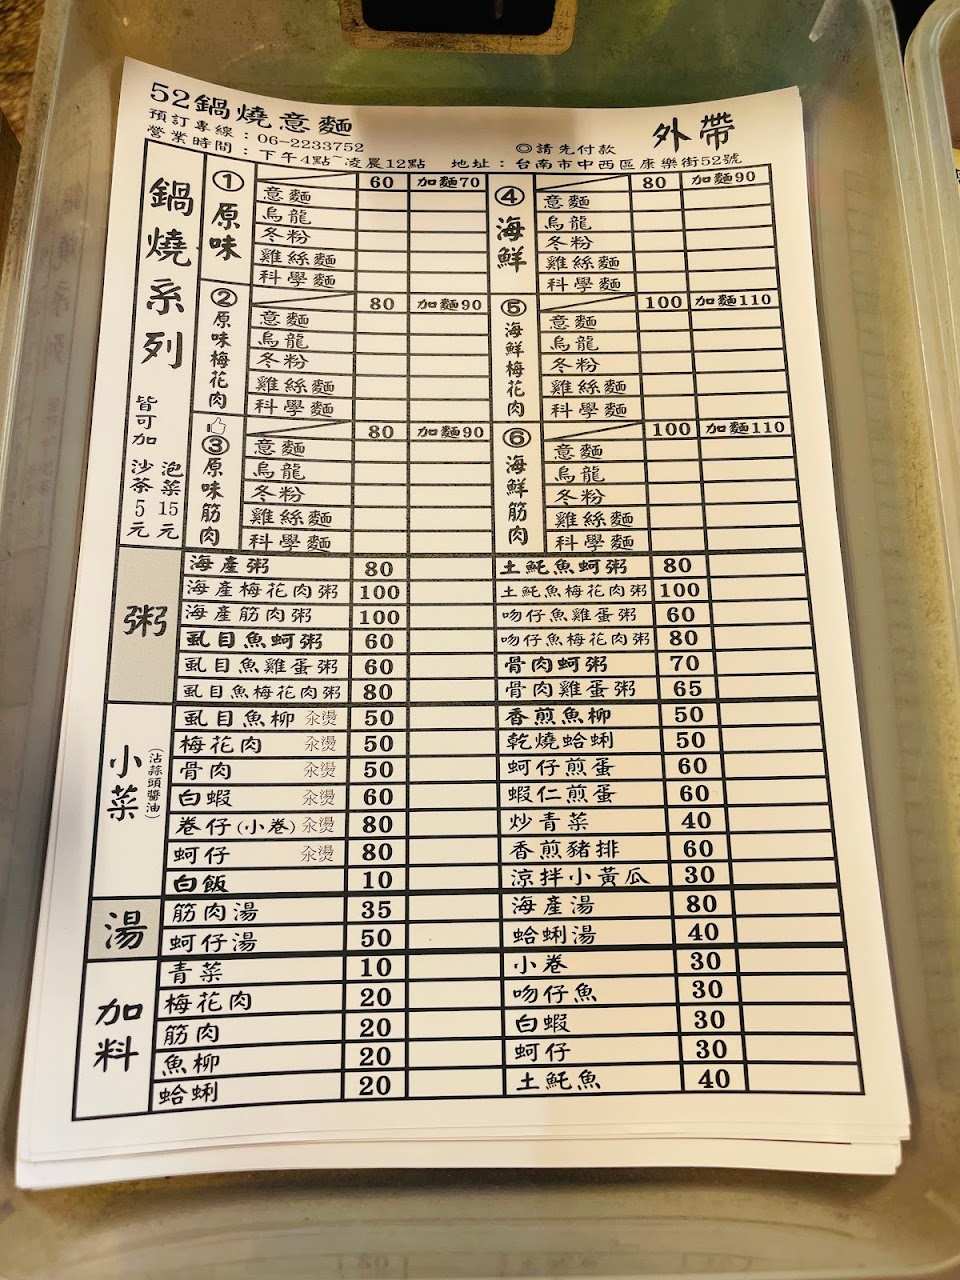 52鍋燒意麵
外帶
預訂專線：06-2233752
◎請先付款
營業時間：下午4點~凌晨12點 地址：台南市中西區康樂街52號
鍋燒系列
皆可加 沙茶5元 泡菜15元
①原味 60 加麵70
意麵
烏龍
冬粉
雞絲麵
科學麵
②原味梅花肉 80 加麵90
意麵
烏龍
冬粉
雞絲麵
科學麵
③原味筋肉 80 加麵90
意麵
烏龍
冬粉
雞絲麵
科學麵
④海鮮 80 加麵90
意麵
烏龍
冬粉
雞絲麵
科學麵
⑤海鮮梅花肉 100 加麵110
意麵
烏龍
冬粉
雞絲麵
科學麵
⑥海鮮筋肉 100 加麵110
意麵
烏龍
冬粉
雞絲麵
科學麵
粥
海產粥 80 土魠魚蚵粥 80
海產梅花肉粥 100 土魠魚梅花肉粥 100
海產筋肉粥 100 吻仔魚雞蛋粥 60
虱目魚蚵粥 60 吻仔魚梅花肉粥 80
虱目魚雞蛋粥 60 骨肉蚵粥 70
虱目魚梅花肉粥 80 骨肉雞蛋粥 65
小菜
(沾蒜頭醬油)
虱目魚柳 汆燙 50 香煎魚柳 50
梅花肉 汆燙 50 乾燒蛤蜊 50
骨肉 汆燙 50 蚵仔煎蛋 60
白蝦 汆燙 60 蝦仁煎蛋 60
卷仔(小卷) 汆燙 80 炒青菜 40
蚵仔 汆燙 80 香煎豬排 60
白飯 10 涼拌小黃瓜 30
湯
筋肉湯 35 海產湯 80
蚵仔湯 50 蛤蜊湯 40
加料
青菜 10 小卷 30
梅花肉 20 吻仔魚 30
筋肉 20 白蝦 30
魚柳 20 蚵仔 30
蛤蜊 20 土魠魚 40